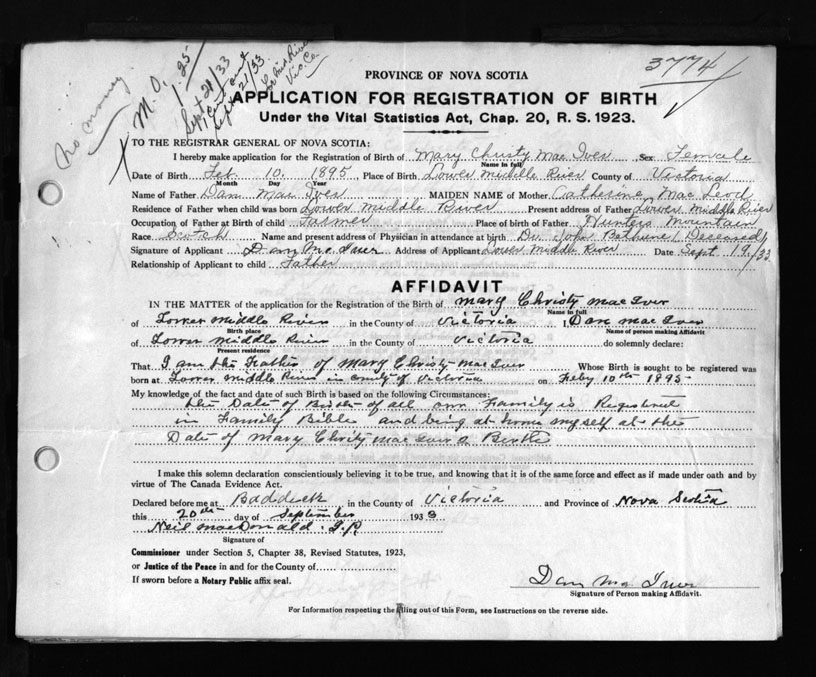 No money
M.O. 1.25
Sept 21/33
1 Cert sent
Sept 21/33
Mid River
Vic. Co.
3774
PROVINCE OF NOVA SCOTIA
APPLICATION FOR REGISTRATION OF BIRTH
Under the Vital Statistics Act, Chap. 20, R. S. 1923.
TO THE REGISTRAR GENERAL OF NOVA SCOTIA:
I hereby make application for the Registration of Birth of Mary Christy Mac Iver Sex Female
Name in full
Date of Birth Feb. 10. 1895 Place of Birth Lower Middle River County of Victoria
Month Day Year
Name of Father Dan Mac Iver MAIDEN NAME of Mother Catherine Mac Leod
Residence of Father when child was born Lower Middle River Present address of Father Lower Middle River
Occupation of Father at Birth of child Farmer Place of birth of Father Hunters Mountain
Race Scotch Name and present address of Physician in attendance at birth Dr. John Bethune (Deceased)
Signature of Applicant Dan Mc Iver Address of Applicant Lower Middle River Date Sept 19/33
Relationship of Applicant to child Father
AFFIDAVIT
IN THE MATTER of the application for the Registration of the Birth of Mary Christy Mac Iver
Name in full
of Lower Middle River in the County of Victoria I, Dan Mac Iver
Birth place Name of person making Affidavit
of Lower Middle River in the County of Victoria do solemnly declare:
Present residence
That I am the Father of Mary Christy Mac Iver Whose Birth is sought to be registered was
born at Lower Middle River in County of Victoria on Feby 10th 1895
My knowledge of the fact and date of such Birth is based on the following Circumstances:
the Date of Birth of all our Family is Registered
in Family Bible and being at home myself at the
Date of Mary Christy Mac Iver Birth
I make this solemn declaration conscientiously believing it to be true, and knowing that it is of the same force and effect as if made under oath and by
virtue of The Canada Evidence Act.
Declared before me at Baddeck in the County of Victoria and Province of Nova Scotia
this 20th day of September 1933
Neil MacDonald J.P.
Signature of
Commissioner under Section 5, Chapter 38, Revised Statutes, 1923,
or Justice of the Peace in and for the County of
If sworn before a Notary Public affix seal.
Dan Mc Iver
Signature of Person making Affidavit.
For Information respecting the filling out of this Form, see Instructions on the reverse side.